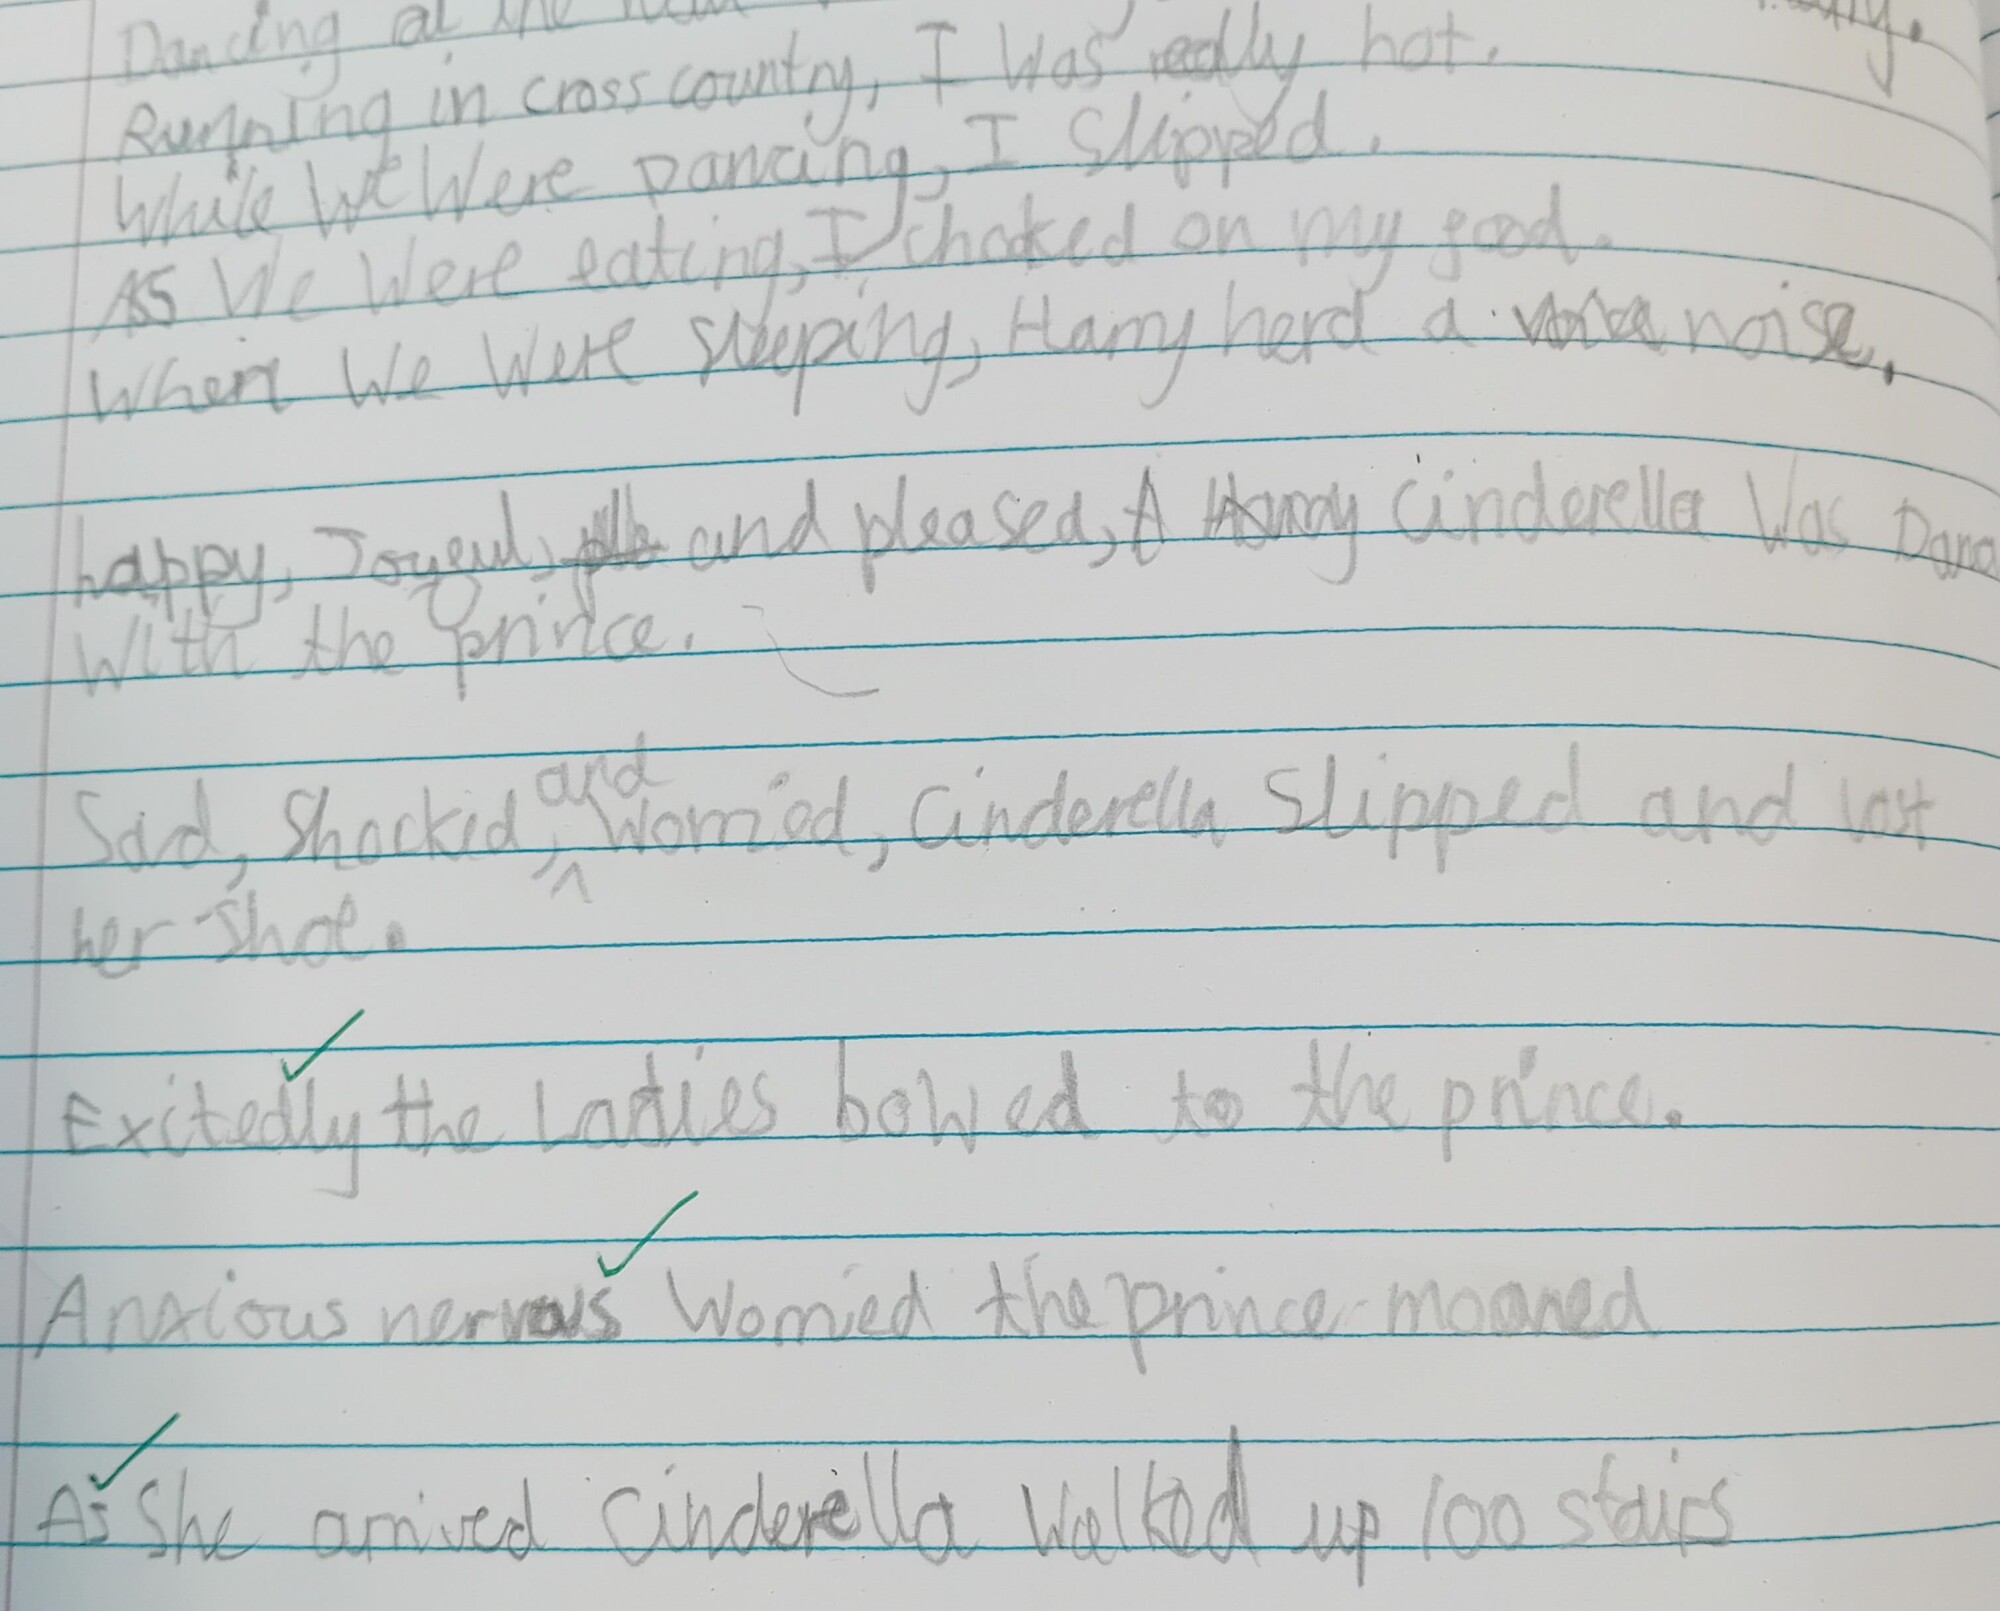 Dancing at the
Running in cross country, I was really hot.
While we were Dancing, I slipped.
As We Were eating, I choked on my food.
When We Were sleeping, Harry herd a noise.
happy, Joyful, and pleased, Cinderella Was Danc
With the prince.
Sad, Shockid, and Worried, Cinderella Slipped and lost
her shoe.
Exitedly the Ladies bowed to the prince.
Anxious nervous Worried the prince moaned
As She arrived Cinderella Walked up 100 stairs